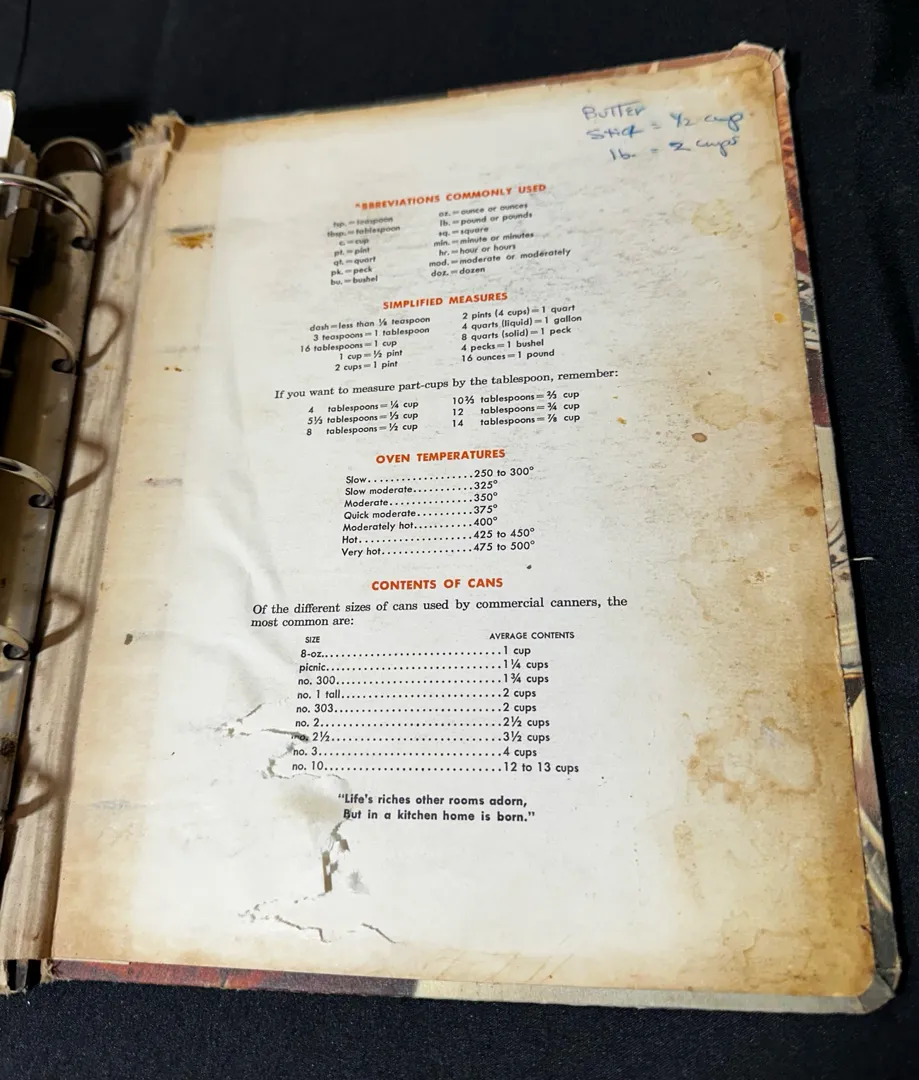 BUTTER
Stick = 1/2 cup
lb. = 2 cups
ABBREVIATIONS COMMONLY USED
tsp.=teaspoon
tbsp.=tablespoon
c.=cup
pt.=pint
qt.=quart
pk.=peck
bu.=bushel
oz.=ounce or ounces
lb.=pound or pounds
sq.=square
min.=minute or minutes
hr.=hour or hours
mod.=moderate or moderately
doz.=dozen
SIMPLIFIED MEASURES
dash=less than ⅛ teaspoon
3 teaspoons=1 tablespoon
16 tablespoons=1 cup
1 cup=½ pint
2 cups=1 pint
2 pints (4 cups)=1 quart
4 quarts (liquid)=1 gallon
8 quarts (solid)=1 peck
4 pecks=1 bushel
16 ounces=1 pound
If you want to measure part-cups by the tablespoon, remember:
4 tablespoons=¼ cup
5⅓ tablespoons=⅓ cup
8 tablespoons=½ cup
10⅔ tablespoons=⅔ cup
12 tablespoons=¾ cup
14 tablespoons=⅞ cup
OVEN TEMPERATURES
Slow...................250 to 300°
Slow moderate...........325°
Moderate................350°
Quick moderate..........375°
Moderately hot...........400°
Hot....................425 to 450°
Very hot................475 to 500°
CONTENTS OF CANS
Of the different sizes of cans used by commercial canners, the
most common are:
SIZE AVERAGE CONTENTS
8-oz................................1 cup
picnic...............................1¼ cups
no. 300.............................1¾ cups
no. 1 tall............................2 cups
no. 303.............................2 cups
no. 2................................2½ cups
no. 2½..............................3½ cups
no. 3................................4 cups
no. 10..............................12 to 13 cups
"Life's riches other rooms adorn,
But in a kitchen home is born."